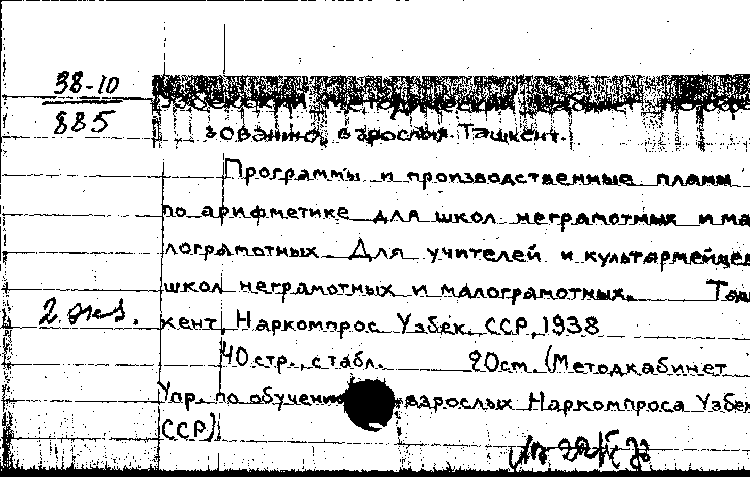 38-10
885
Узбекский методический кабинет по обра
зованию взрослых. Ташкент.
Программы и производственные планы
по арифметике для школ неграмотных и ма
лограмотных. Для учителей и культармейцев
школ неграмотных и малограмотных. Таш
кент, Наркомпрос Узбек. ССР, 1938
40 стр., с табл. 20 см. (Методкабинет
2 экз.
Упр. по обучению взрослых Наркомпроса Узбек
ССР)